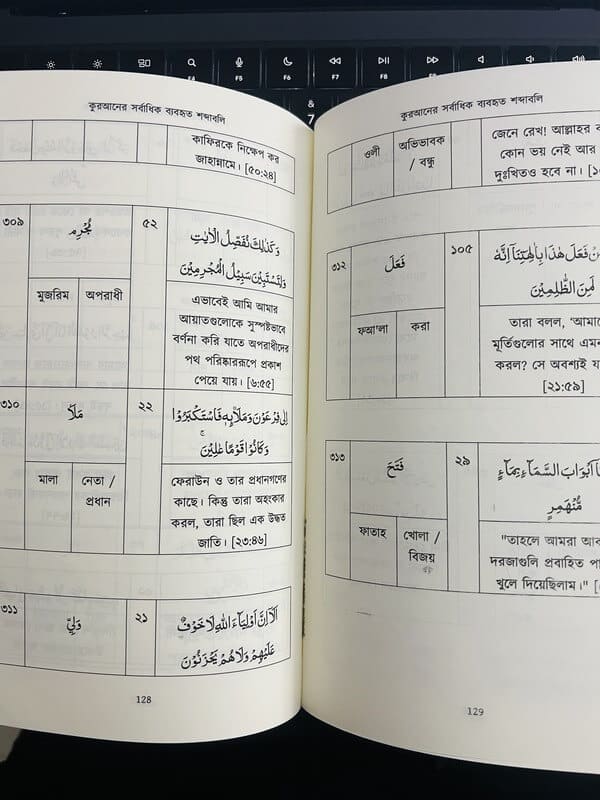 F4
F5
F6
F7
F8
F9
&
7
কুরআনের সর্বাধিক ব্যবহৃত শব্দাবলি
কাফিরকে নিক্ষেপ কর
জাহান্নামে। [৫০:২৪]
৩০৯
مُجْرِم
৫২
وَكَذٰلِكَ نُفَصِّلُ الْاٰيٰتِ
وَلِتَسْتَبِيْنَ سَبِيْلُ الْمُجْرِمِيْنَ
মুজরিম
অপরাধী
এভাবেই আমি আমার
আয়াতগুলোকে সুস্পষ্টভাবে
বর্ণনা করি যাতে অপরাধীদের
পথ পরিষ্কাররূপে প্রকাশ
পেয়ে যায়। [৬:৫৫]
৩১০
مَلَأ
২২
اِلٰى فِرْعَوْنَ وَمَلَا۟ئِهٖ فَاسْتَكْبَرُوْا
وَكَانُوْا قَوْمًا عَالِيْنَ ۚ
মালা
নেতা /
প্রধান
ফেরাউন ও তার প্রধানগণের
কাছে। কিন্তু তারা অহংকার
করল, তারা ছিল এক উদ্ধত
জাতি। [২৩:৪৬]
৩১১
وَلِيّ
২১
اَلَاۤ اِنَّ اَوْلِيَآءَ اللّٰهِ لَا خَوْفٌ
عَلَيْهِمْ وَلَا هُمْ يَحْزَنُوْنَ
128
কুরআনের সর্বাধিক ব্যবহৃত শব্দাবলি
ওলী
অভিভাবক
/ বন্ধু
জেনে রেখ! আল্লাহর
কোন ভয় নেই আর
দুঃখিতও হবে না।
৩১২
فَعَلَ
১০৫
فَعَلَ هٰذَا بِاٰلِهَتِنَاۤ اِنَّهٗ
لَمِنَ الظّٰلِمِيْنَ
ফআ'লা
করা
তারা বলল,
মূর্তিগুলোর সাথে
করল? সে অবশ্যই
[২১:৫৯]
৩১৩
فَتَحَ
২৯
اَبْوَابَ السَّمَآءِ بِمَآءٍ
مُّنْهَمِرٍ
ফাতাহ
খোলা /
বিজয়
"তাহলে আমরা
দরজাগুলি প্রবাহিত
খুলে দিয়েছিলাম।"
129